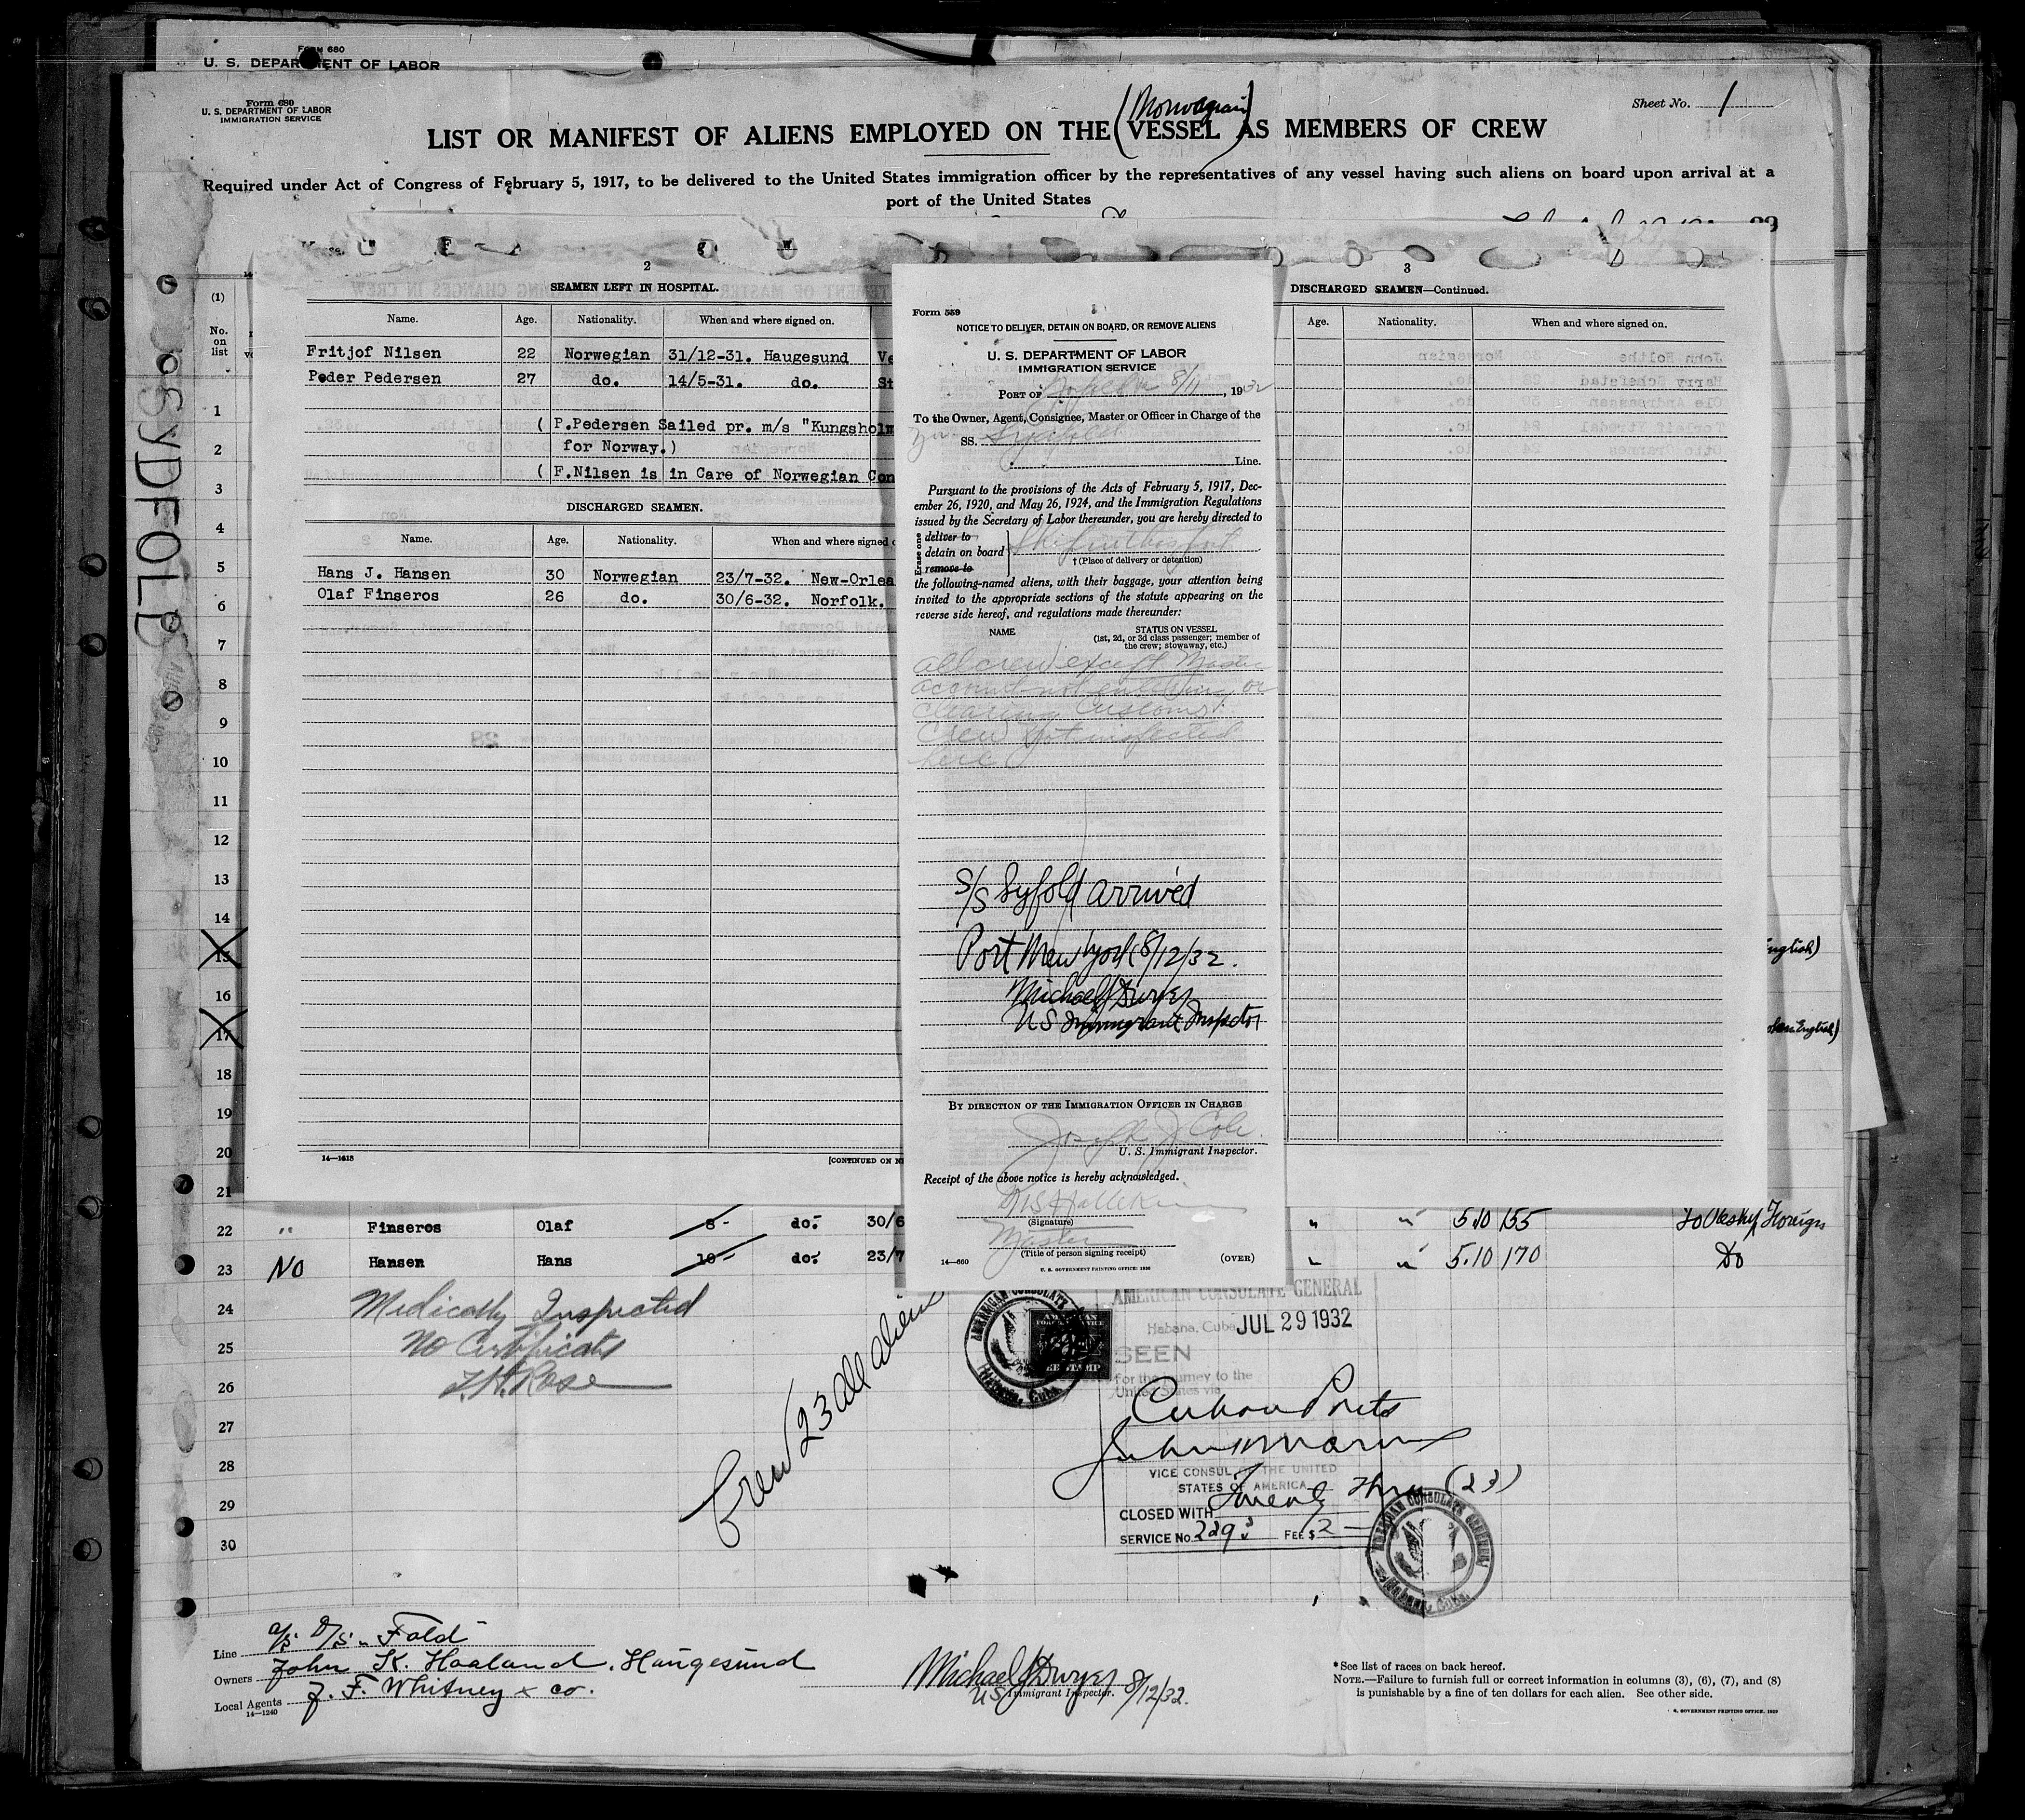 Form 680
U. S. DEPARTMENT OF LABOR
Form 680
U. S. DEPARTMENT OF LABOR
IMMIGRATION SERVICE
Sheet No. 1
(Norwegian)
LIST OR MANIFEST OF ALIENS EMPLOYED ON THE VESSEL AS MEMBERS OF CREW
Required under Act of Congress of February 5, 1917, to be delivered to the United States immigration officer by the representatives of any vessel having such aliens on board upon arrival at a
port of the United States
SYDFOLD
(1)
No.
on
list
1
2
3
4
5
6
7
8
9
10
11
12
13
14
15
16
17
18
19
20
21
2
SEAMEN LEFT IN HOSPITAL.
Name. Age. Nationality. When and where signed on.
Fritjof Nilsen 22 Norwegian 31/12-31. Haugesund Ve
Peder Pedersen 27 do. 14/5-31. do. St
( P.Pedersen Sailed pr. m/s "Kungsholm
for Norway.)
( F.Nilsen is in Care of Norwegian Con
DISCHARGED SEAMEN.
Name. Age. Nationality. When and where signed
Hans J. Hansen 30 Norwegian 23/7-32. New-Orlea
Olaf Finseros 26 do. 30/6-32. Norfolk.
14—1613
[CONTINUED ON
Form 559
NOTICE TO DELIVER, DETAIN ON BOARD, OR REMOVE ALIENS
U. S. DEPARTMENT OF LABOR
IMMIGRATION SERVICE
PORT OF Norfolk Va 8/11, 1932
To the Owner, Agent, Consignee, Master or Officer in Charge of the
SS. Sydfold
Line.
Pursuant to the provisions of the Acts of February 5, 1917, Dec-
ember 26, 1920, and May 26, 1924, and the Immigration Regulations
issued by the Secretary of Labor thereunder, you are hereby directed to
Erase one
deliver to
detain on board
remove to
Ship in this port
† (Place of delivery or detention)
the following-named aliens, with their baggage, your attention being
invited to the appropriate sections of the statute appearing on the
reverse side hereof, and regulations made thereunder:
NAME
STATUS ON VESSEL
(1st, 2d, or 3d class passenger; member of
the crew; stowaway, etc.)
all crew except Master
account not entering or
clearing Customs.
Crew not inspected
here
S/S Syfold arrived
Port New York 8/12/32.
Michael J Dwyer
US Immigrant Inspector
BY DIRECTION OF THE IMMIGRATION OFFICER IN CHARGE
Joseph J Cole.
U. S. Immigrant Inspector.
Receipt of the above notice is hereby acknowledged.
(Signature)
Master
(Title of person signing receipt)
14—660
U. S. GOVERNMENT PRINTING OFFICE: 1930
(OVER)
3
DISCHARGED SEAMEN—Continued.
Age. Nationality. When and where signed on.
English)
English)
22 " Finseros Olaf 8- do.- 30/6 " " 5.10 155 Foreign
23 No Hansen Hans 10- do.- 23/7 " " 5.10 170 Do
24
25
26
27
28
29
30
Medically Inspected
No Certificate
T.H. Rose
Crew 23 all aliens
AMERICAN CONSULATE
Habana, Cuba
AMERICAN CONSULATE GENERAL
Habana, Cuba JUL 29 1932
SEEN
for the journey to the
United States via
Cuban Ports
VICE CONSUL OF THE UNITED
STATES OF AMERICA
CLOSED WITH Twenty Three (23)
SERVICE No. 2293 FEE $ 2—
AMERICAN CONSULATE GENERAL
Habana, Cuba.
Line a/s D/S. Fold
Owners John K. Haaland, Haugesund
Local Agents J. F. Whitney & Co.
14—1240
Michael J Dwyer 8/12/32.
US Immigrant Inspector.
* See list of races on back hereof.
NOTE.—Failure to furnish full or correct information in columns (3), (6), (7), and (8)
is punishable by a fine of ten dollars for each alien. See other side.
S. GOVERNMENT PRINTING OFFICE. 1929